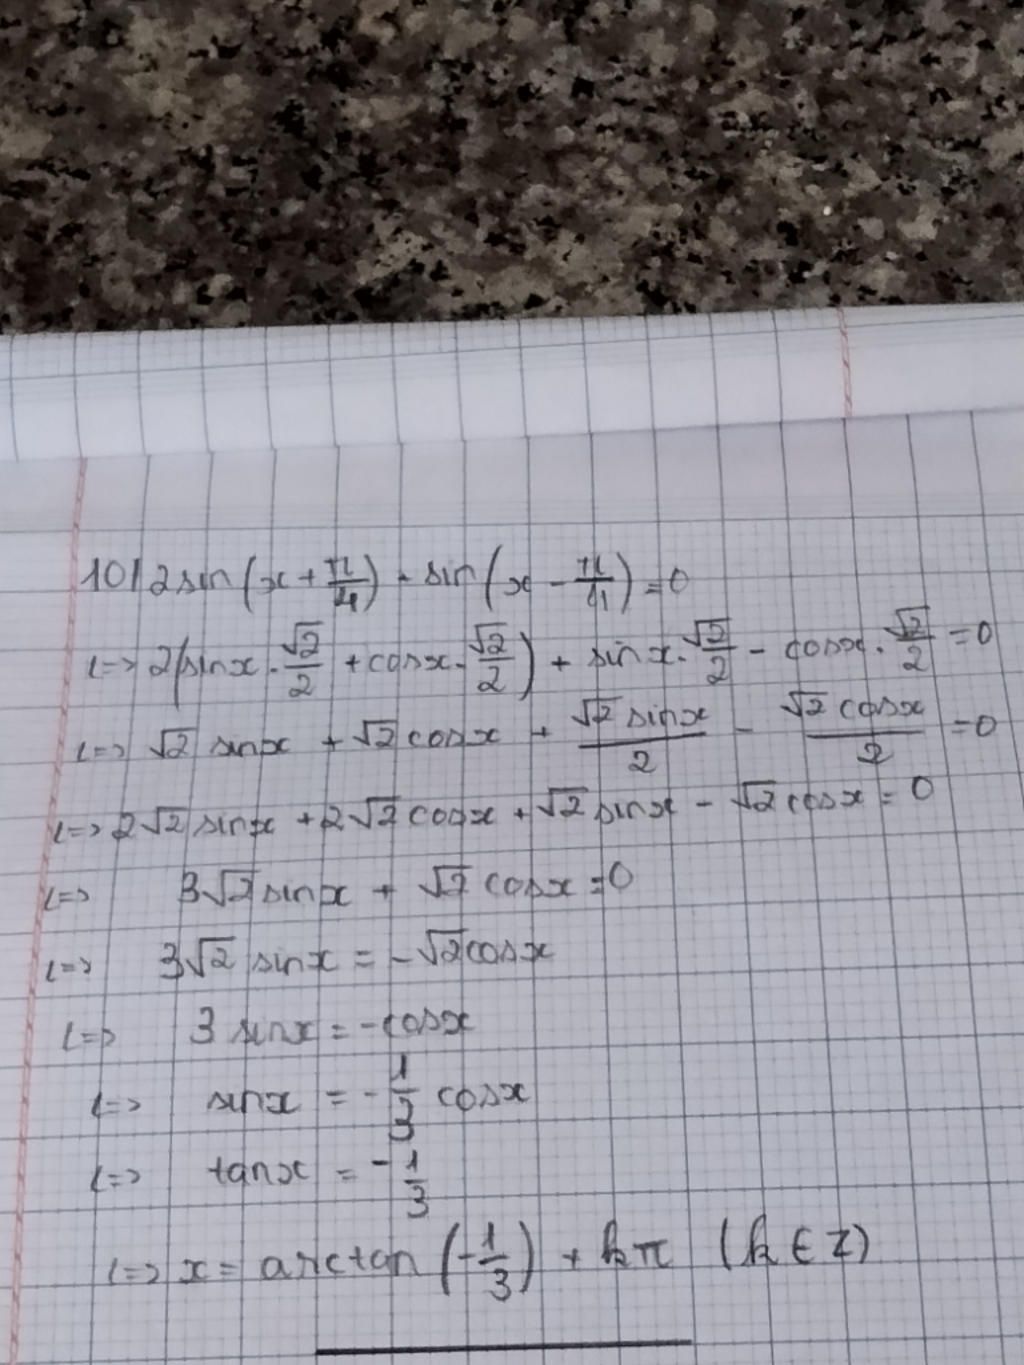 10/ 2sin(x + π/4) + sin(x - π/4) = 0
<=> 2(sinx.√2/2 + cosx.√2/2) + sinx.√2/2 - cosx.√2/2 = 0
<=> √2 sinx + √2 cosx + √2 sinx/2 - √2 cosx/2 = 0
<=> 2√2 sinx + 2√2 cosx + √2 sinx - √2 cosx = 0
<=> 3√2 sinx + √2 cosx = 0
<=> 3√2 sinx = -√2 cosx
<=> 3 sinx = -cosx
<=> sinx = -1/3 cosx
<=> tanx = -1/3
<=> x = arctan(-1/3) + kπ (k ∈ Z)